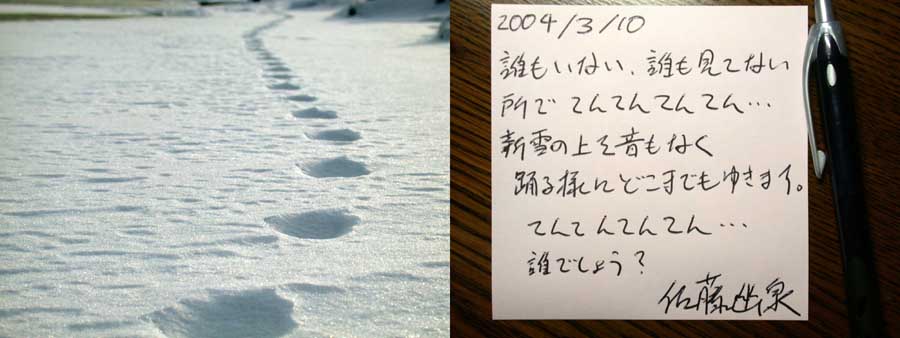 2004/3/10
誰もいない、誰も見てない
所で てんてんてんてん…
新雪の上を音もなく
踊る様にどこまでもゆきます。
てんてんてんてん…
誰でしょう?
佐藤出泉